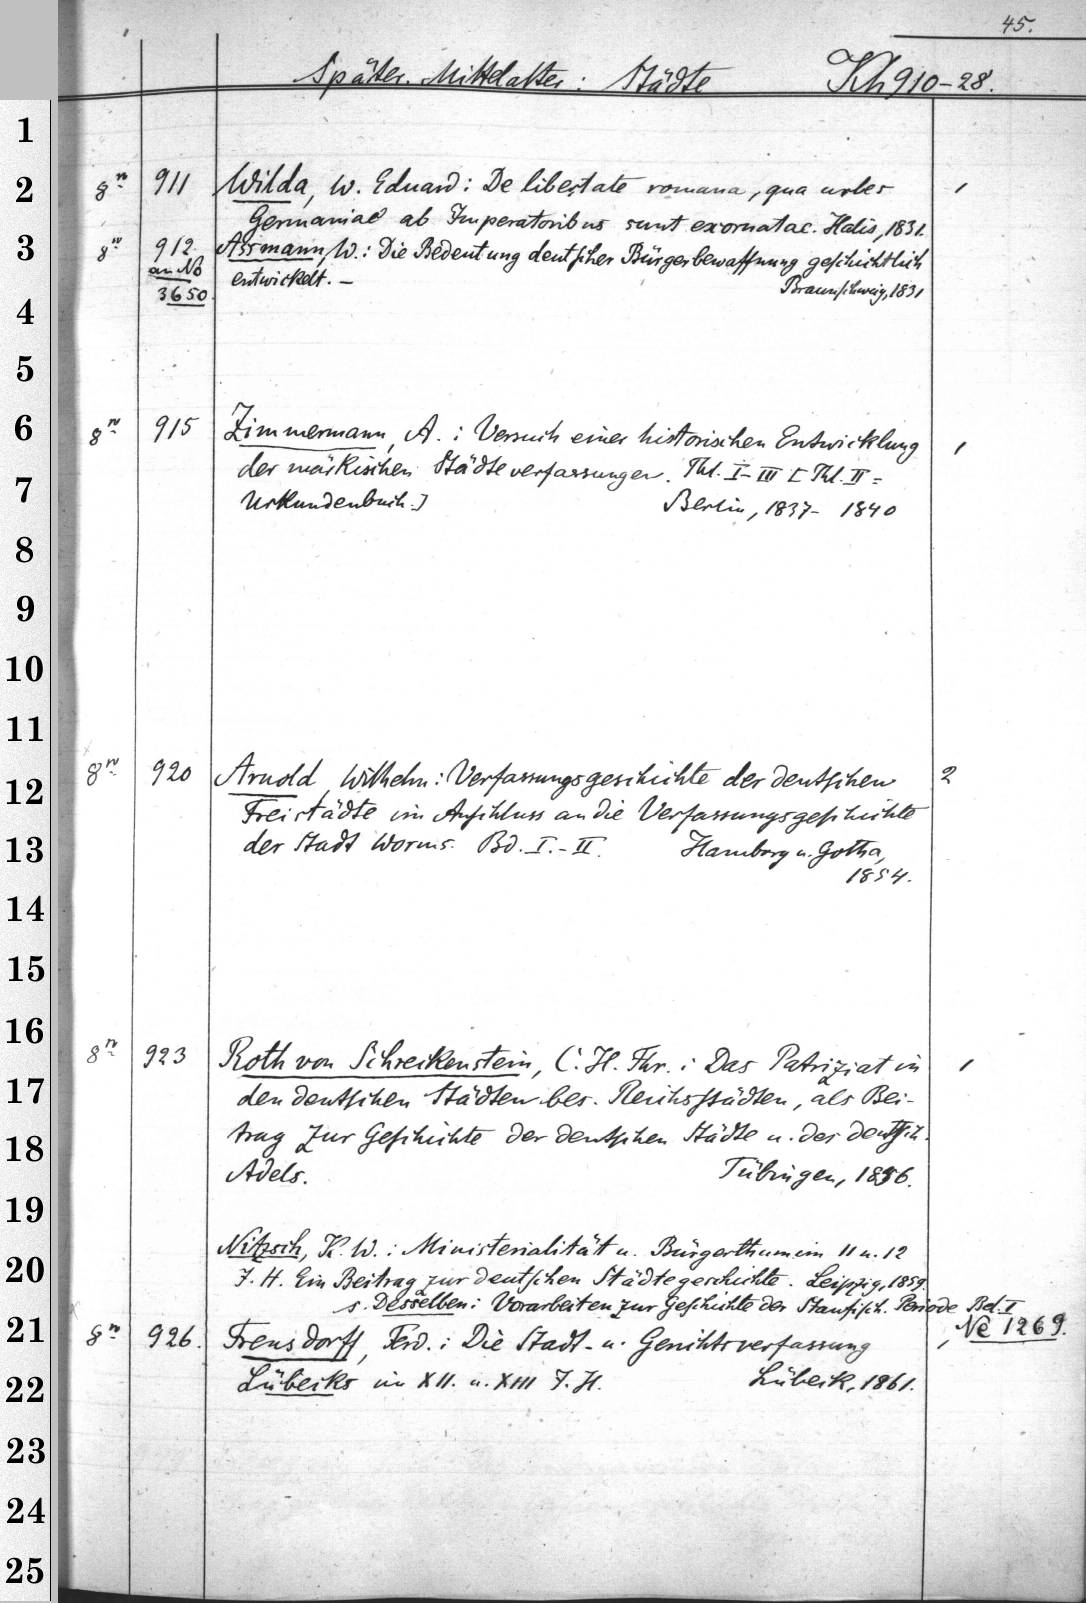 45.
Später. Mittelalter: Städte Kh 910-28.
1
2
3
4
5
6
7
8
9
10
11
12
13
14
15
16
17
18
19
20
21
22
23
24
25
8° 911 Wilda, W. Eduard: De libertate romana, qua urbes 1
Germaniae ab Imperatoribus sunt exornatae. Halis, 1831.
8° 912 Assmann, W.: Die Bedeutung deutscher Bürgerbewaffnung geschichtlich
an No entwickelt. —
3650. Braunschweig, 1831
8° 915 Zimmermann, A.: Versuch einer historischen Entwicklung 1
der märkischen Städteverfassungen. Thl. I-III [Thl. II =
Urkundenbuch.] Berlin, 1837- 1840
8° 920 Arnold, Wilhelm: Verfassungsgeschichte der deutschen 2
Freistädte im Anschluss an die Verfassungsgeschichte
der Stadt Worms. Bd. I.-II. Hamburg u. Gotha,
1854.
8° 923 Roth von Schreckenstein, C. H. Fhr.: Das Patriziat in 1
den deutschen Städten bes. Reichsstädten, als Bei-
trag zur Geschichte der deutschen Städte u. des deutsch.
Adels. Tübingen, 1856.
Nitzsch, K. W.: Ministerialität u. Bürgerthum im 11 u. 12
J. H. Ein Beitrag zur deutschen Städtegeschichte. Leipzig, 1859.
s. Desselben: Vorarbeiten zur Geschichte der Staufisch. Periode Bd. I
Ne 1269.
8° 926. Frensdorff, Ferd.: Die Stadt- u. Gerichtsverfassung 1
Lübecks im XII. u. XIII J. H. Lübeck, 1861.